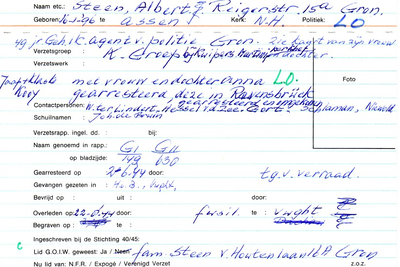 Naam etc.: Steen, Albert Reigerstr. 15a Gron.
Geboren: 10-2-96 te assen Kerk: N.H. Politiek: LO
49 jr Geh.k. agent v. politie Gron. zie kaart van zijn vrouw
Verzetsgroep : K. Groep bij Kuipers en dochter.
Verzetswerk :
met vrouw en dochter anna L.O.
Foto
gearresteerd, deze in Ravensbrück
gearresteerd en
Contactpersonen: W. ter Lindert, Hessel v.d. Zee
Schuilnamen : Joh. de Bruin
Verzetsrapp. ingel. dd. : bij:
Naam genoemd in rapp.: GI GII
op bladzijde: 149 630
Gearresteerd op : 2-6-44 door : t.g.v. verraad.
Gevangen gezeten in : H.v.B., Vught,
Bevrijd op : uit : door:
Overleden op : 22-8-44 door : fusil. te : Vught
Begraven op : te :
Ingeschreven bij de Stichting 40/45:
Lid G.O.I.W. geweest Ja / Neen fam. Steen v. Houtenlaan Gron
Nu lid van: N.F.R. / Expogé / Verenigd Verzet z.o.z.